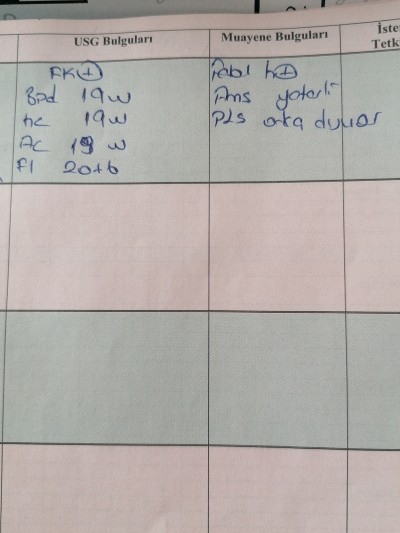 USG Bulguları
Muayene Bulguları
İste
Tetk
FK(+)
Bpd 19w
HC 19w
AC 19 w
Fl 20+6
h(+)
Ams yeterli
PLS arka duvar